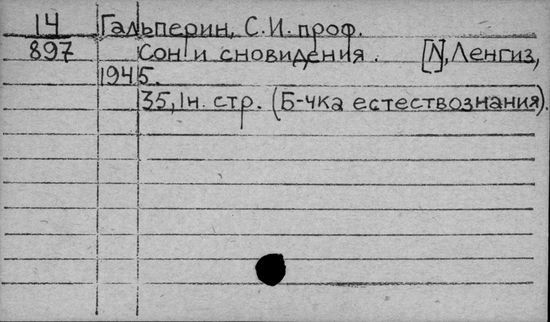 14 Гальперин, С.И. проф.
897 Сон и сновидения. [Л], Ленгиз,
1945.
35, 1н. стр. (Б-чка естествознания).